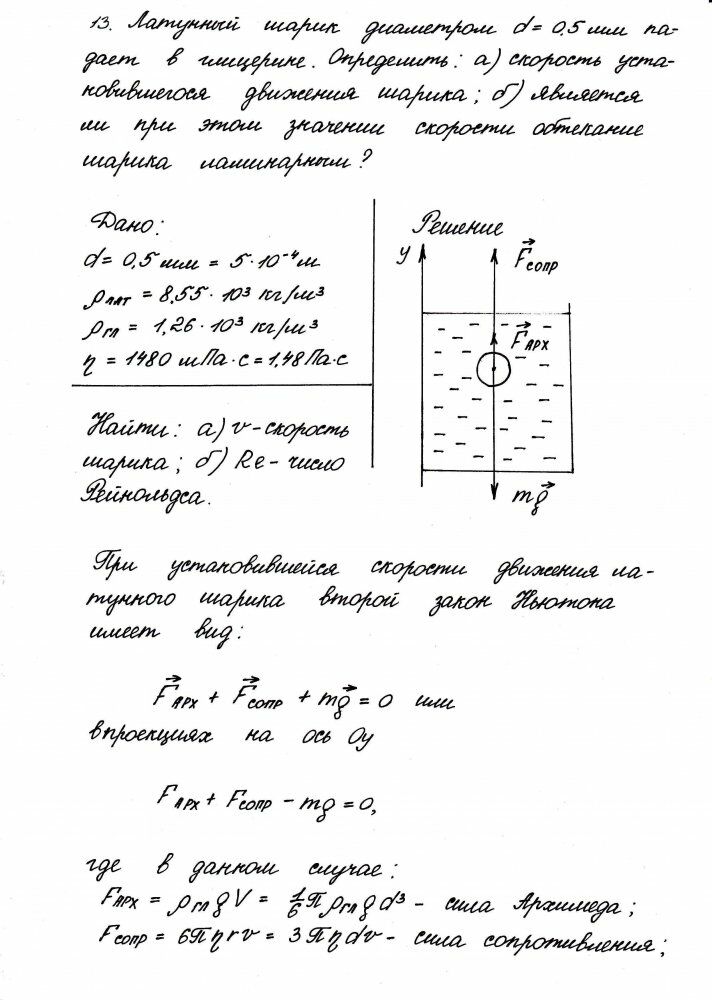 13. Латунный шарик диаметром d = 0,5 мм па-
дает в глицерине. Определить: а) скорость уста-
новившегося движения шарика; б) является
ли при этом значении скорости обтекание
шарика ламинарным?
Дано:
d = 0,5 мм = 5·10⁻⁴ м
ρлат = 8,55·10³ кг/м³
ρгл = 1,26·10³ кг/м³
η = 1480 мПа·с = 1,48 Па·с
Найти: а) v - скорость
шарика; б) Re - число
Рейнольдса.
Решение
y
F⃗сопр
F⃗арх
mg⃗
При установившейся скорости движения ла-
тунного шарика второй закон Ньютона
имеет вид:
F⃗арх + F⃗сопр + mg⃗ = 0 или
впроекциях на ось Oy
Fарх + Fсопр - mg = 0,
где в данном случае:
Fарх = ρгл g V = 1/6 π ρгл g d³ - сила Архимеда;
Fсопр = 6πηrv = 3πηdv - сила сопротивления;